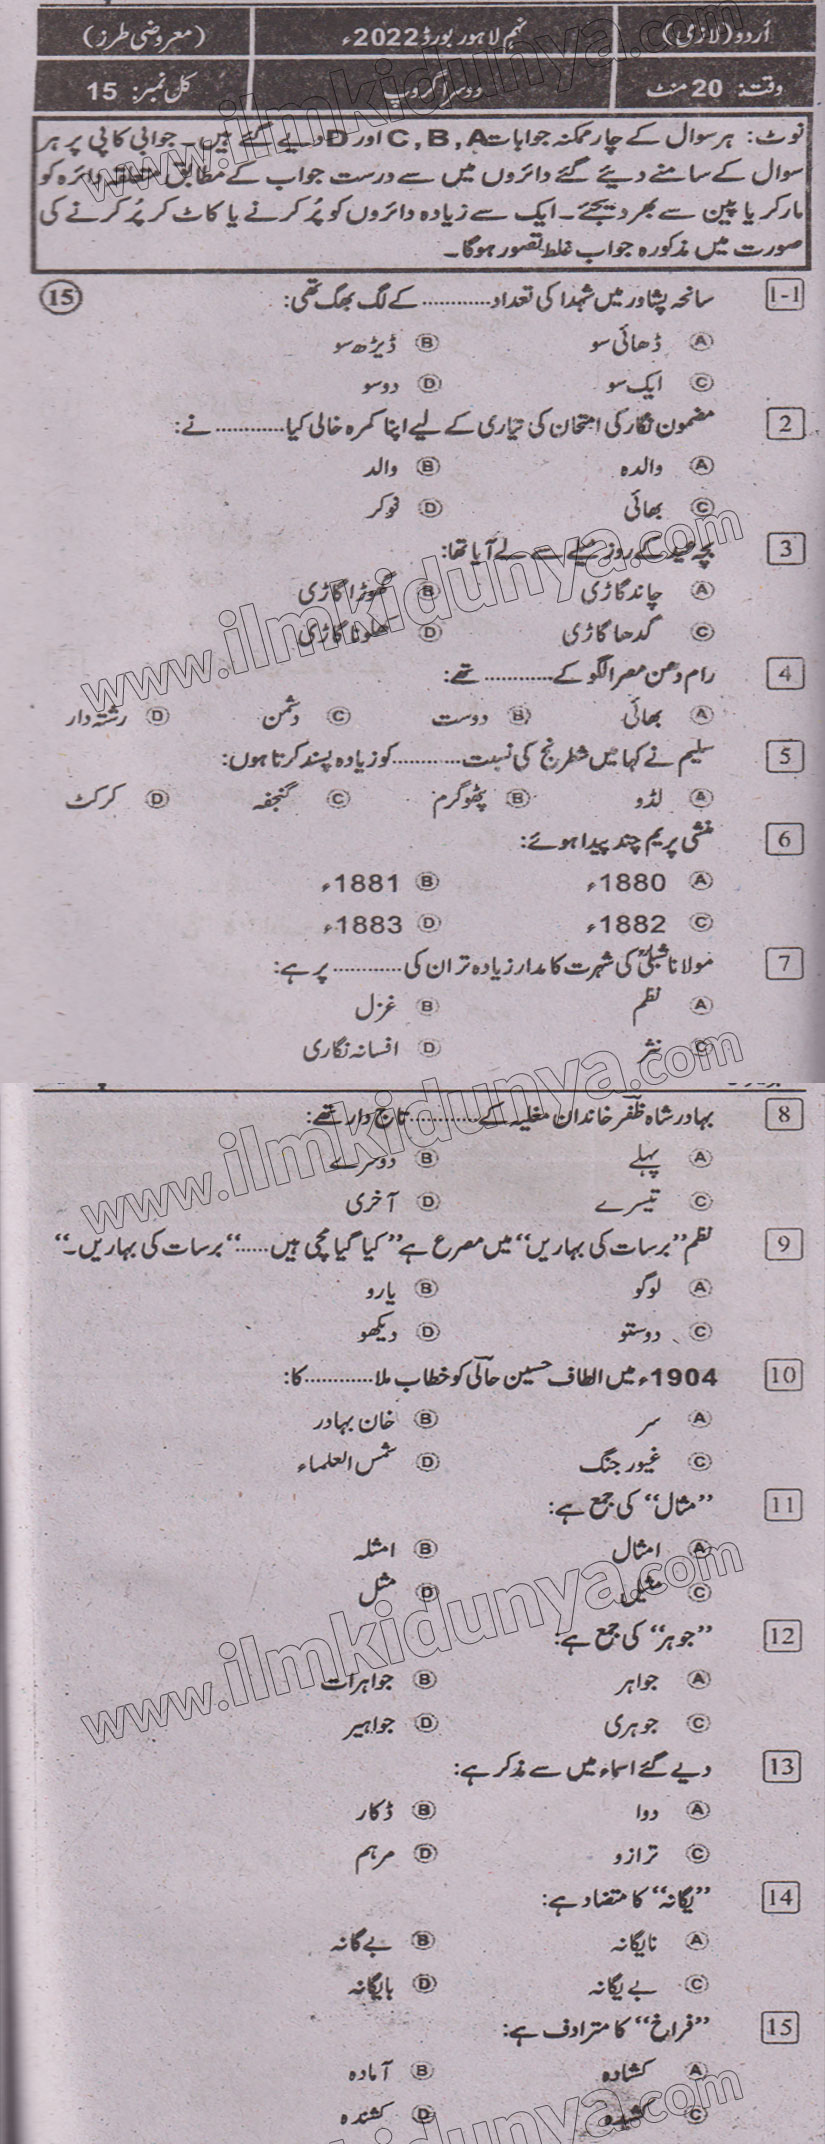 اُردو (لازمی) نہم لاہور بورڈ 2022ء (معروضی طرز)
وقت: 20 منٹ دوسرا گروپ کل نمبر: 15
نوٹ: ہر سوال کے چار ممکنہ جوابات C, B, A اور D دیے گئے ہیں۔ جوابی کاپی پر ہر
سوال کے سامنے دیئے گئے دائروں میں سے درست جواب کے مطابق متعلقہ دائرہ کو
مارکر یا پین سے بھر دیجئے۔ ایک سے زیادہ دائروں کو پُر کرنے یا کاٹ کر پُر کرنے کی
صورت میں مذکورہ جواب غلط تصور ہوگا۔
1-1 سانحہ پشاور میں شہدا کی تعداد............ کے لگ بھگ تھی: 15
A ڈھائی سو B ڈیڑھ سو
C ایک سو D دو سو
2 مضمون نگار کی امتحان کی تیاری کے لیے اپنا کمرہ خالی کیا............ نے:
A والدہ B والد
C بھائی D نوکر
3 بچہ عید کے روز میلے سے لے آیا تھا:
A چاند گاڑی B گھوڑا گاڑی
C گدھا گاڑی D کھلونا گاڑی
4 رام دھن مصر الگو کے............ تھے:
A بھائی B دوست C دشمن D رشتہ دار
5 سلیم نے کہا میں شطرنج کی نسبت............کو زیادہ پسند کرتا ہوں:
A لڈو B پٹھوگرم C گنجفہ D کرکٹ
6 منشی پریم چند پیدا ہوئے:
A 1880ء B 1881ء
C 1882ء D 1883ء
7 مولانا شبلیؒ کی شہرت کا مدار زیادہ تر ان کی............ پر ہے:
A نظم B غزل
C نثر D افسانہ نگاری
8 بہادر شاہ ظفرؔ خاندان مغلیہ کے............ تاج دار تھے:
A پہلے B دوسرے
C تیسرے D آخری
9 نظم ”برسات کی بہاریں“ میں مصرع ہے ”کیا گیا مچی ہیں......“ برسات کی بہاریں۔“
A لوگو B یارو
C دوستو D دیکھو
10 1904ء میں الطاف حسین حالیؔ کو خطاب ملا............کا:
A سر B خان بہادر
C غیور جنگ D شمس العلماء
11 ”مثال“ کی جمع ہے:
A امثال B امثلہ
C مثلیں D مثل
12 ”جوہر“ کی جمع ہے:
A جواہر B جواہرات
C جوہری D جواہیر
13 دیے گئے اسماء میں سے مذکر ہے:
A دوا B ڈکار
C ترازو D مرہم
14 ”یگانہ“ کا متضاد ہے:
A نایگانہ B بے گانہ
C بے یگانہ D بایگانہ
15 ”فراخ“ کا مترادف ہے:
A کشادہ B آمادہ
C کشیدہ D کشندہ
www.ilmkidunya.com
www.ilmkidunya.com
www.ilmkidunya.com
www.ilmkidunya.com
www.ilmkidunya.com